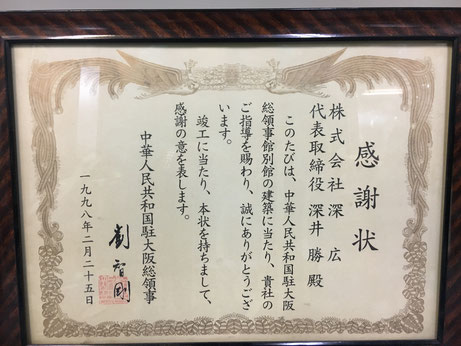 感謝状
株式会社 深広
代表取締役 深井勝殿
このたびは、中華人民共和国駐大阪
総領事館別館の建築に当たり、貴社の
ご指導を賜わり、誠にありがとうござ
います。
竣工に当たり、本状を持ちまして、
感謝の意を表します。
中華人民共和国駐大阪総領事
劉智剛
一九九八年二月二十五日